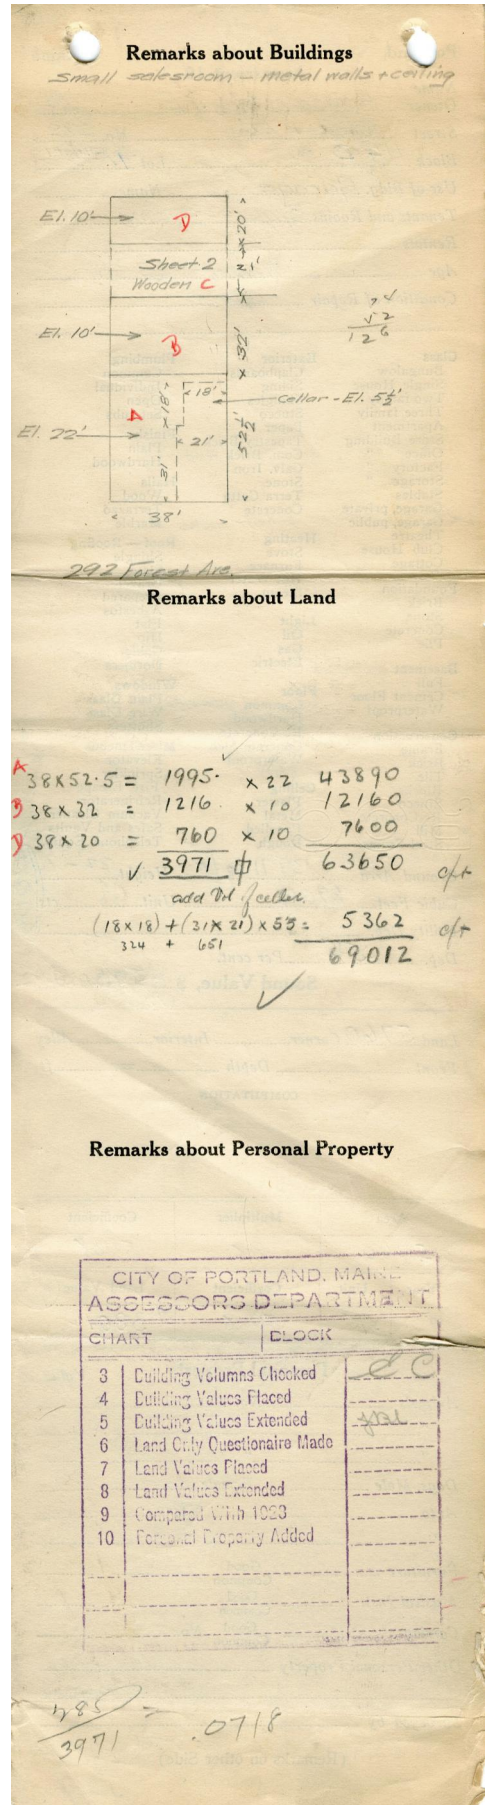 Remarks about Buildings
Small salesroom - metal walls + ceiling
El. 10'
D
20'
Sheet 2
Wooden C
El. 10'
B
32'
74
52
126
18'
Cellar - El. 5½'
A
18'
El. 22'
21'
52½'
31'
38'
292 Forest Ave.
Remarks about Land
A 38 x 52.5 = 1995. x 22 43890
B 38 x 32 = 1216 x 10 12160
D 38 x 20 = 760 x 10 7600
✓ 3971 63650 c/ft
add Vol of cellar.
(18 x 18) + (31 x 21) x 5.5 = 5362 c/ft
324 + 651
69012
✓
Remarks about Personal Property
CITY OF PORTLAND, MAINE
ASSESSORS DEPARTMENT
CHART BLOCK
3 Building Volumns Checked E C
4 Building Values Placed
5 Building Values Extended
6 Land Only Questionaire Made
7 Land Values Placed
8 Land Values Extended
9 Compared With 1923
10 Personal Property Added
285 = .0718
3971